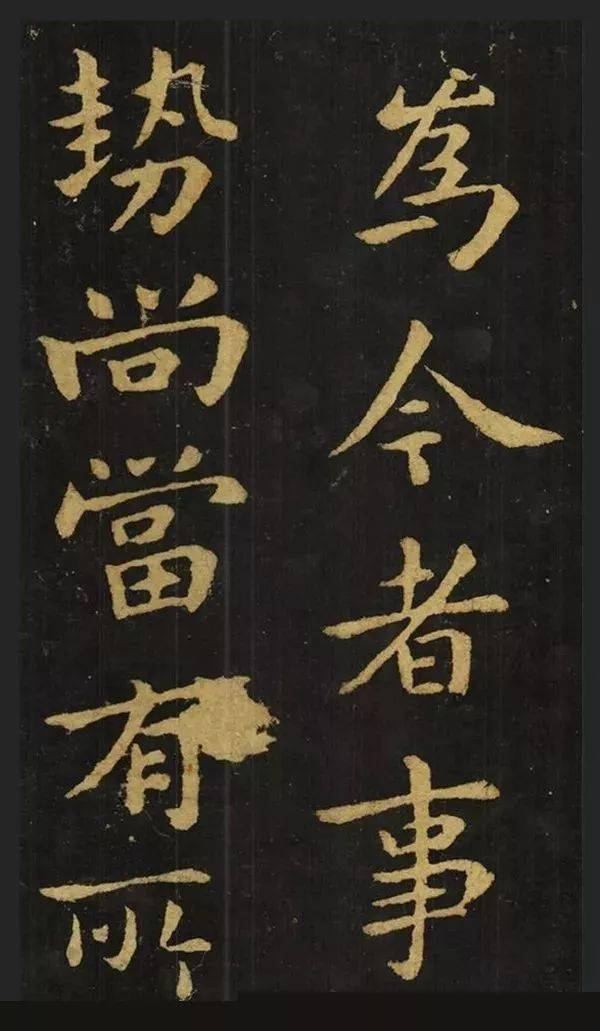 為今者事
勢尚當有所